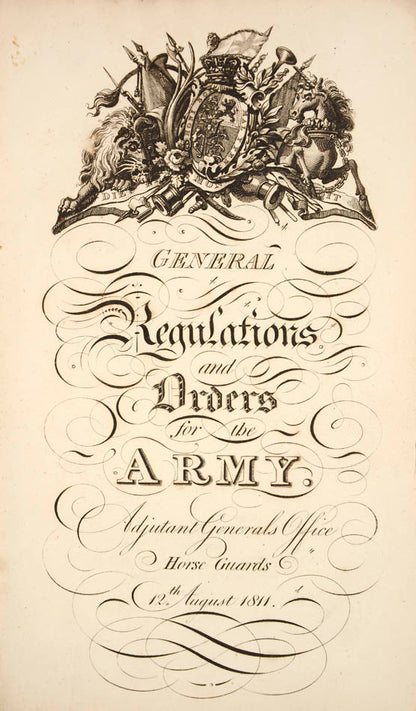 DI
IT
GENERAL
Regulations
and
Orders
for the
ARMY.
Adjutant Generals Office
Horse Guards
12.th August 1811.